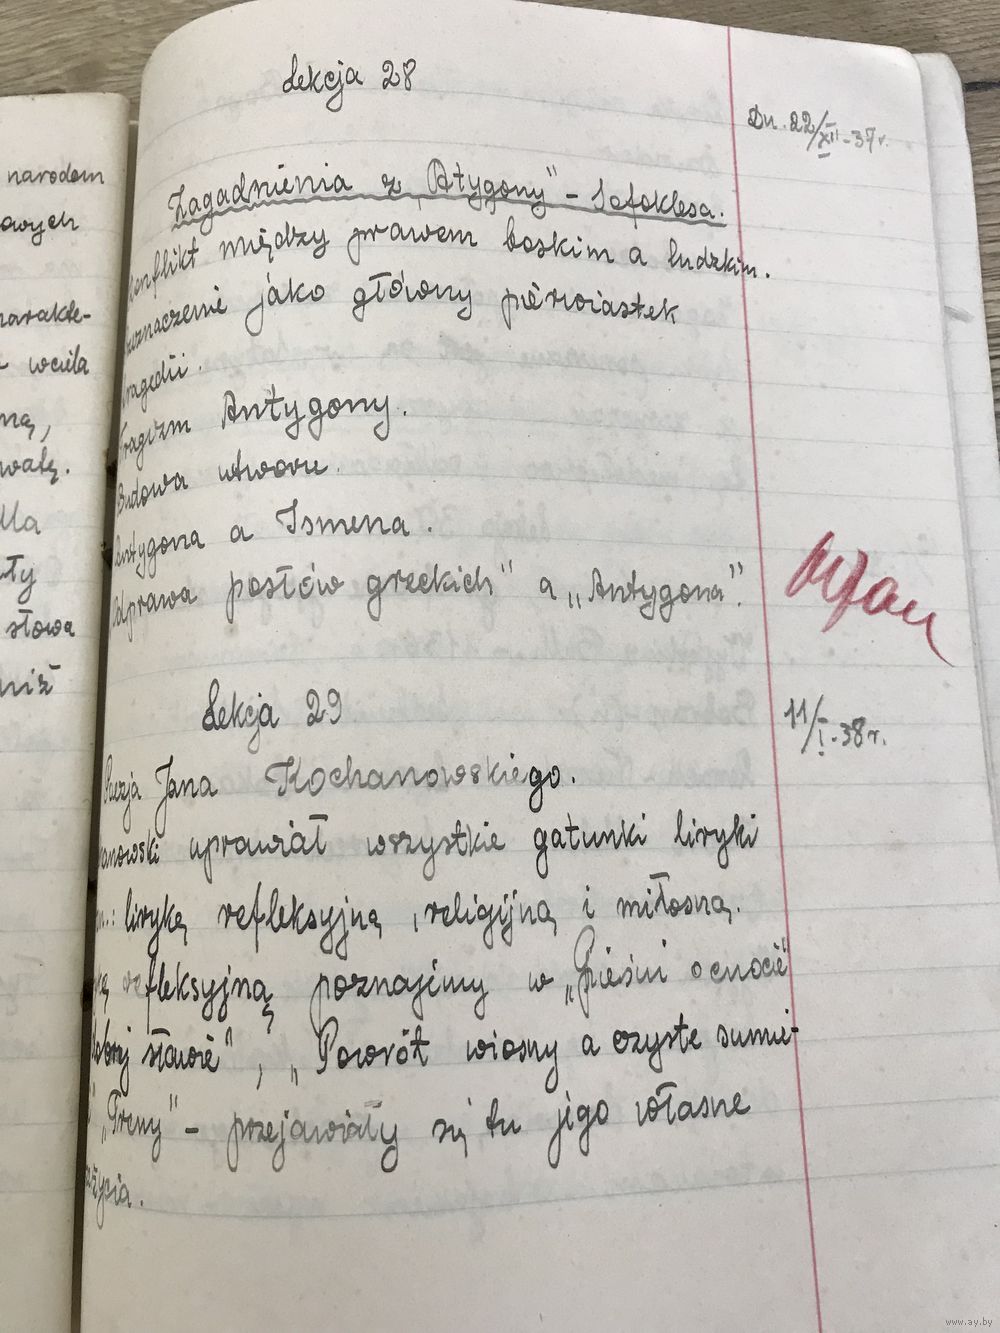 narodem
owych
charakte-
wciela
ną,
wałę.
dla
ły
słowa
niż
Lekcja 28
Dn. 22/XII-37r.
Zagadnienia z „Atygony" - Sofoklesa.
Konflikt między prawem boskim a ludzkim.
Przeznaczenie jako główny pierwiastek
tragedii.
Tragizm Antygony.
Budowa utworu.
Antygona a Ismena.
Odprawa posłów greckich" a „Antygona".
Lekcja 29
11/I-38r.
Poezja Jana Kochanowskiego.
anowski uprawiał wszystkie gatunki liryki
m.: lirykę refleksyjną, religijną i miłosną.
kę refleksyjną poznajemy w „Pieśni o cnocie"
dobrej sławie", „Powrót wiosny a czyste sumie-
„Treny" - przejawiały się tu jego własne
życia.
www.ay.by